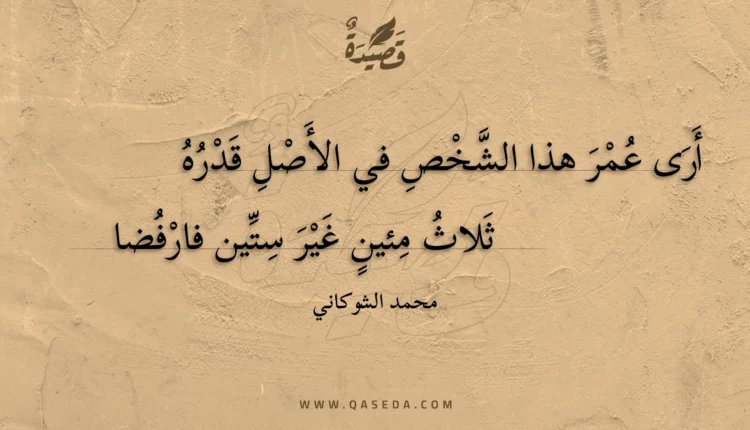 قَصِيدَةٌ
أَرَى عُمْرَ هذا الشَّخْصِ في الأَصْلِ قَدْرُهُ
ثَلاثُ مِئينٍ غَيْرَ سِتِّين فارْفُضا
محمد الشوكاني
WWW.QASEDA.COM